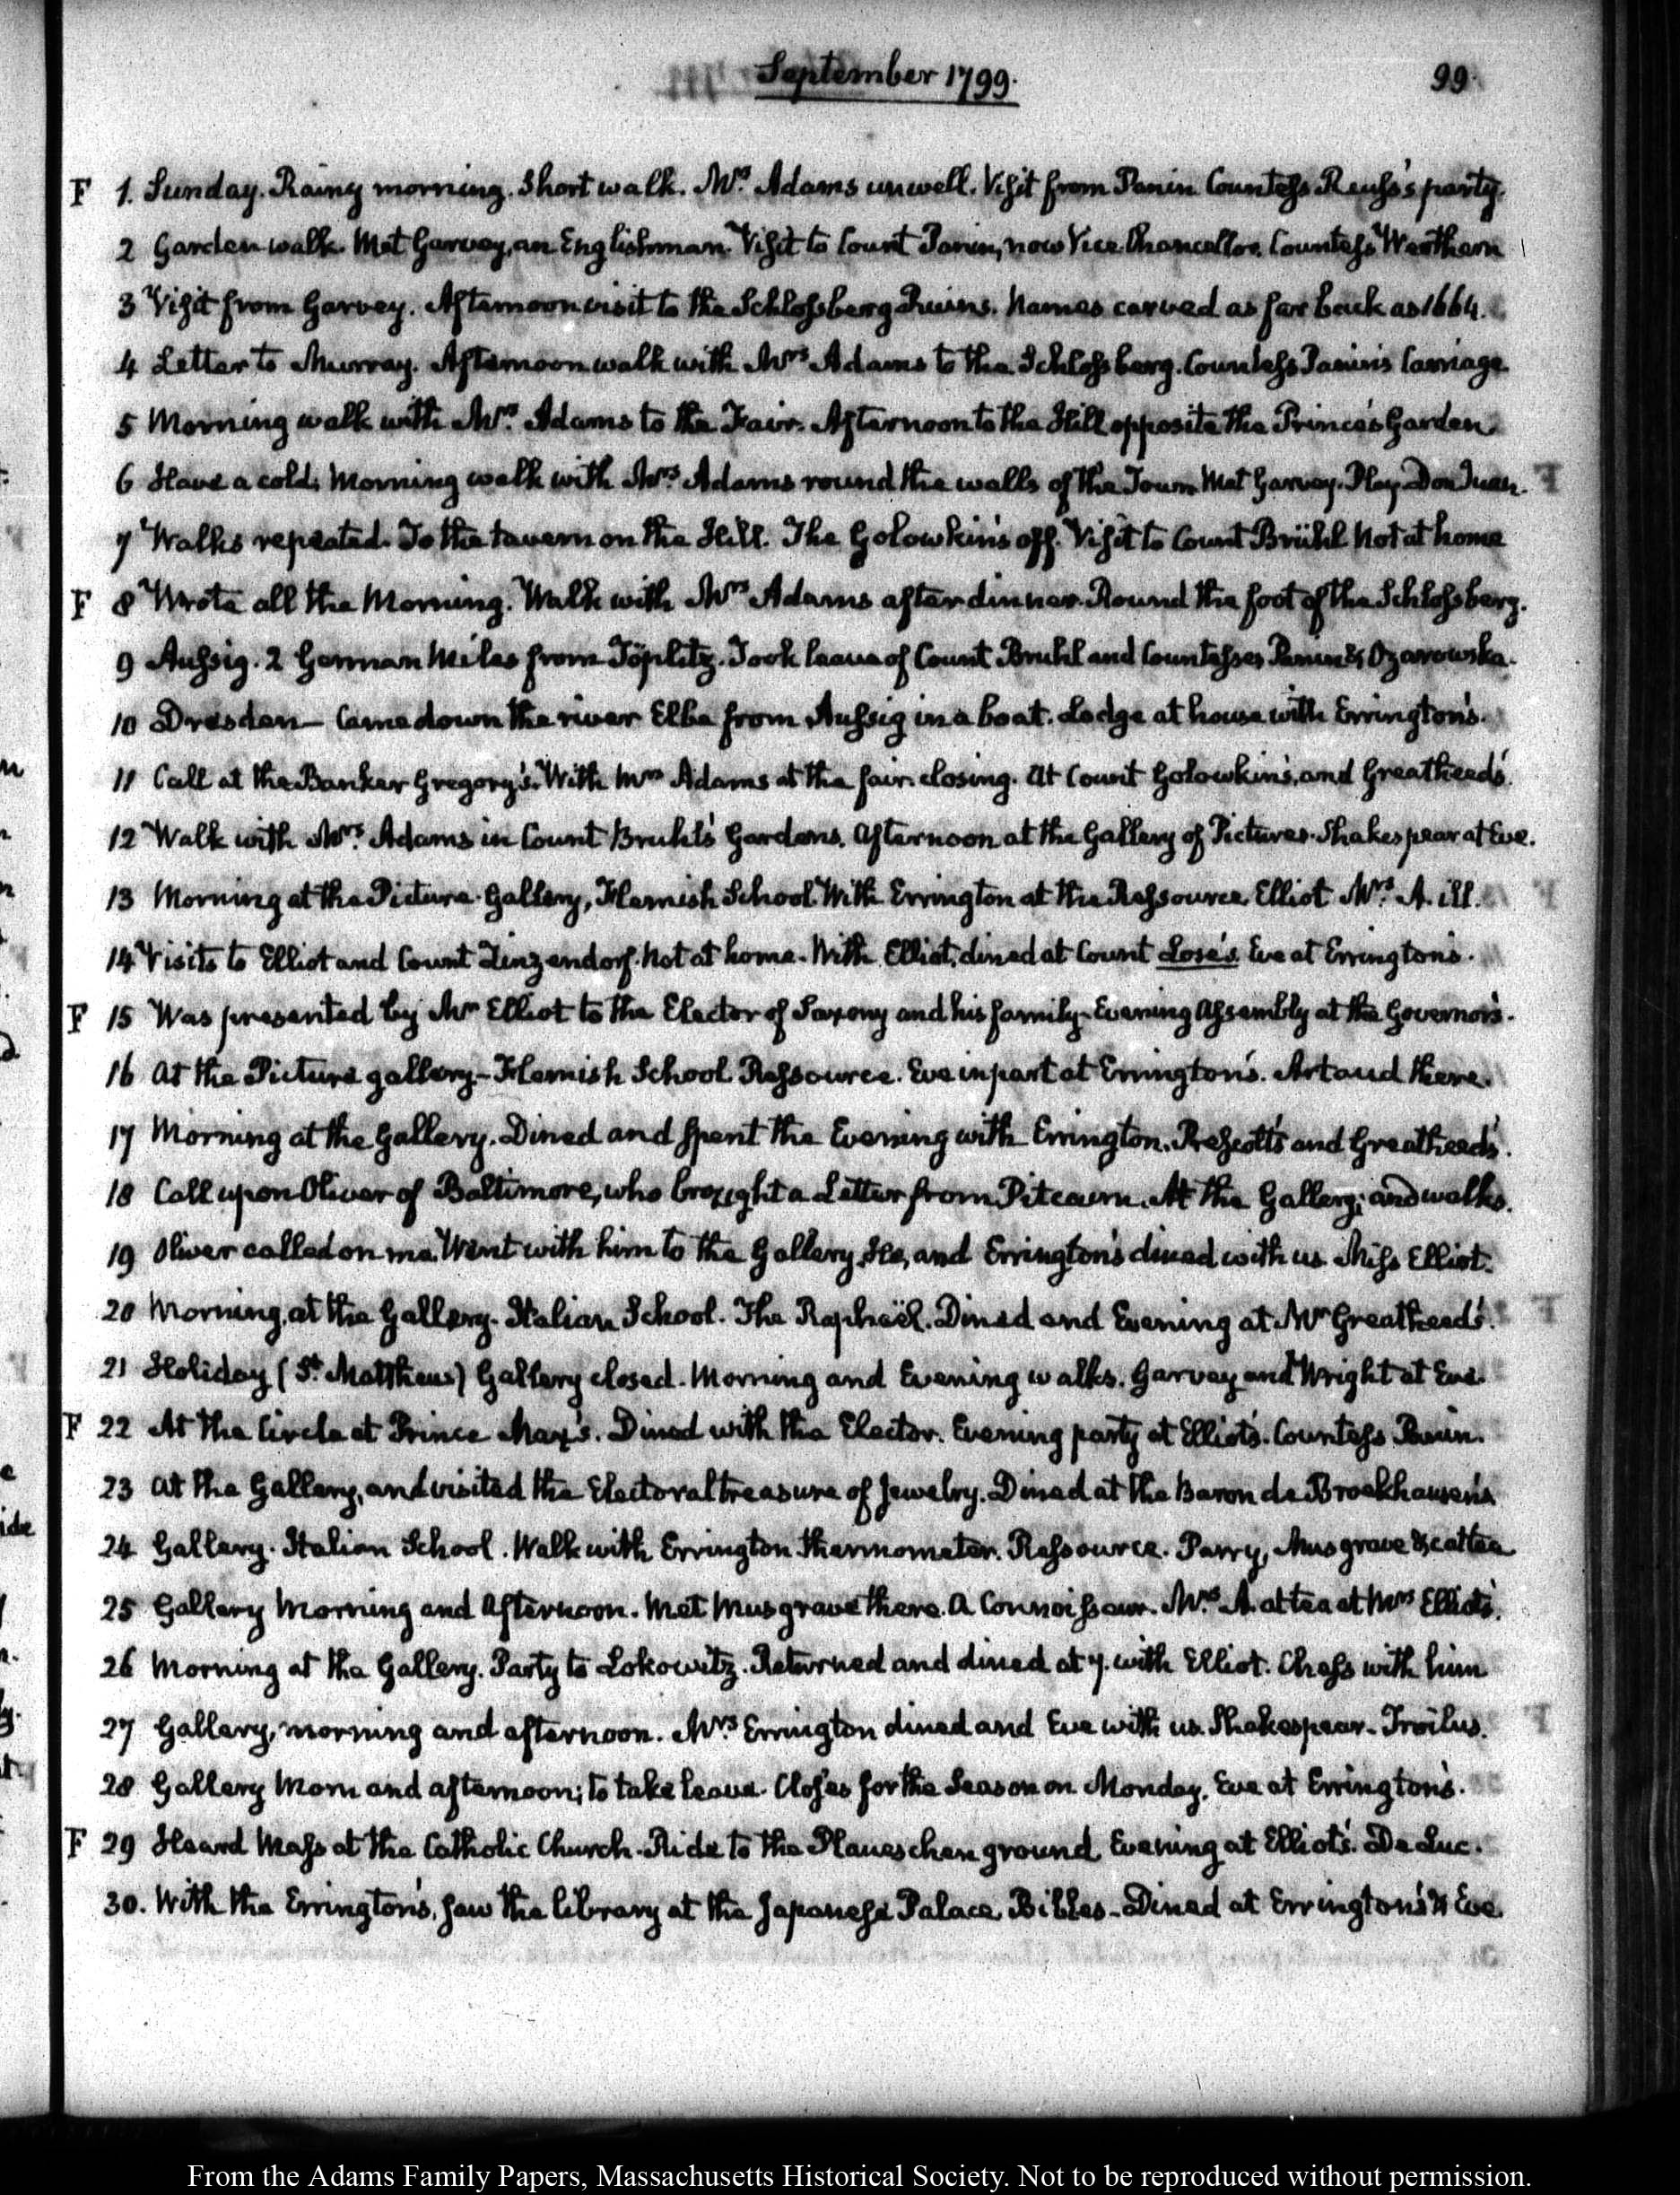 September 1799.
99.
F 1. Sunday. Rainy morning. Short walk. Mrs. Adams unwell. Visit from Panin Countess Reuss's party.
2 Garden walk. Met Garvey, an Englishman. Visit to Count Panin, now Vice Chancellor. Countess Werthern
3 Visit from Garvey. Afternoon visit to the Schlossberg Ruins. Names carved as far back as 1664.
4 Letter to Murray. Afternoon walk with Mrs Adams to the Schlossberg. Countess Panin's Carriage.
5 Morning walk with Mrs. Adams to the Fair. Afternoon to the Hill opposite the Prince's Garden.
6 Have a cold. Morning walk with Mrs. Adams round the walls of the Town. Met Garvey. Play. Don Juan.
7 Walks repeated. To the tavern on the Hill. The Golowkin's off. Visit to Count Brühl Not at home
F 8 Wrote all the Morning. Walk with Mrs Adams after dinner. Round the foot of the Schlossberg.
9 Aussig. 2 German Miles from Töplitz. Took leave of Count Bruhl and Countesses Panin & Ozarowska.
10 Dresden — Came down the river Elbe from Aussig in a boat. Lodge at house with Errington's.
11 Call at the Banker Gregory's. With Mrs Adams at the fair. closing. At Count Golowkin's, and Greatheed's.
12 Walk with Mrs. Adams in Count Bruhl's Gardens. Afternoon at the Gallery of Pictures. Shakespear at Eve.
13 Morning at the Picture-Gallery, Flemish School. With Errington at the Ressource. Elliot Mrs. A. ill.
14 Visits to Elliot and Count Zinzendorf. Not at home. With Elliot, dined at Count Lose's. Eve at Errington's.
F 15 Was presented by Mr Elliot to the Elector of Saxony and his family. Evening Assembly at the Governor's.
16 At the Picture gallery - Flemish School. Ressource. Eve in part at Errington's. Artaud there.
17 Morning at the Gallery. Dined and spent the Evening with Errington. Prescott's and Greatheed's.
18 Call upon Oliver of Baltimore, who brought a Letter from Pitcairn. At the Gallery; and walks.
19 Oliver called on me. Went with him to the Gallery. He, and Errington's dined with us. Miss Elliot.
20 Morning, at the Gallery. Italian School. The Raphaël. Dined and Evening at Mr Greatheed's.
21 Holiday (St. Mattheus) Gallery closed. Morning and Evening walks. Garvey and Wright at Eve.
F 22 At the Circle at Prince Max's. Dined with the Elector. Evening party at Elliot's. Countess Panin.
23 At the Gallery, and visited the Electoral treasure of Jewelry. Dined at the Baron de Brockhausen's
24 Gallery. Italian School. Walk with Errington Thermometer. Ressource. Parry, Musgrave &c at tea
25 Gallery Morning and Afternoon. Met Musgrave there. A Connoisseur. Mrs. A. at tea at Mrs Elliot's.
26 Morning at the Gallery. Party to Lokowitz. Returned and dined at 7. with Elliot. Chess with him
27 Gallery, morning and afternoon. Mrs. Errington dined and Eve with us. Shakespear - Troilus.
28 Gallery Morn and afternoon; to take leave. Closes for the Season on Monday. Eve at Errington's.
F 29 Heard Mass at the Catholic Church. Ride to the Plaueschen ground Evening at Elliot's. De Luc.
30. With the Errington's, saw the library at the Japanese Palace. Bibles - Dined at Errington's & Eve.
From the Adams Family Papers, Massachusetts Historical Society. Not to be reproduced without permission.